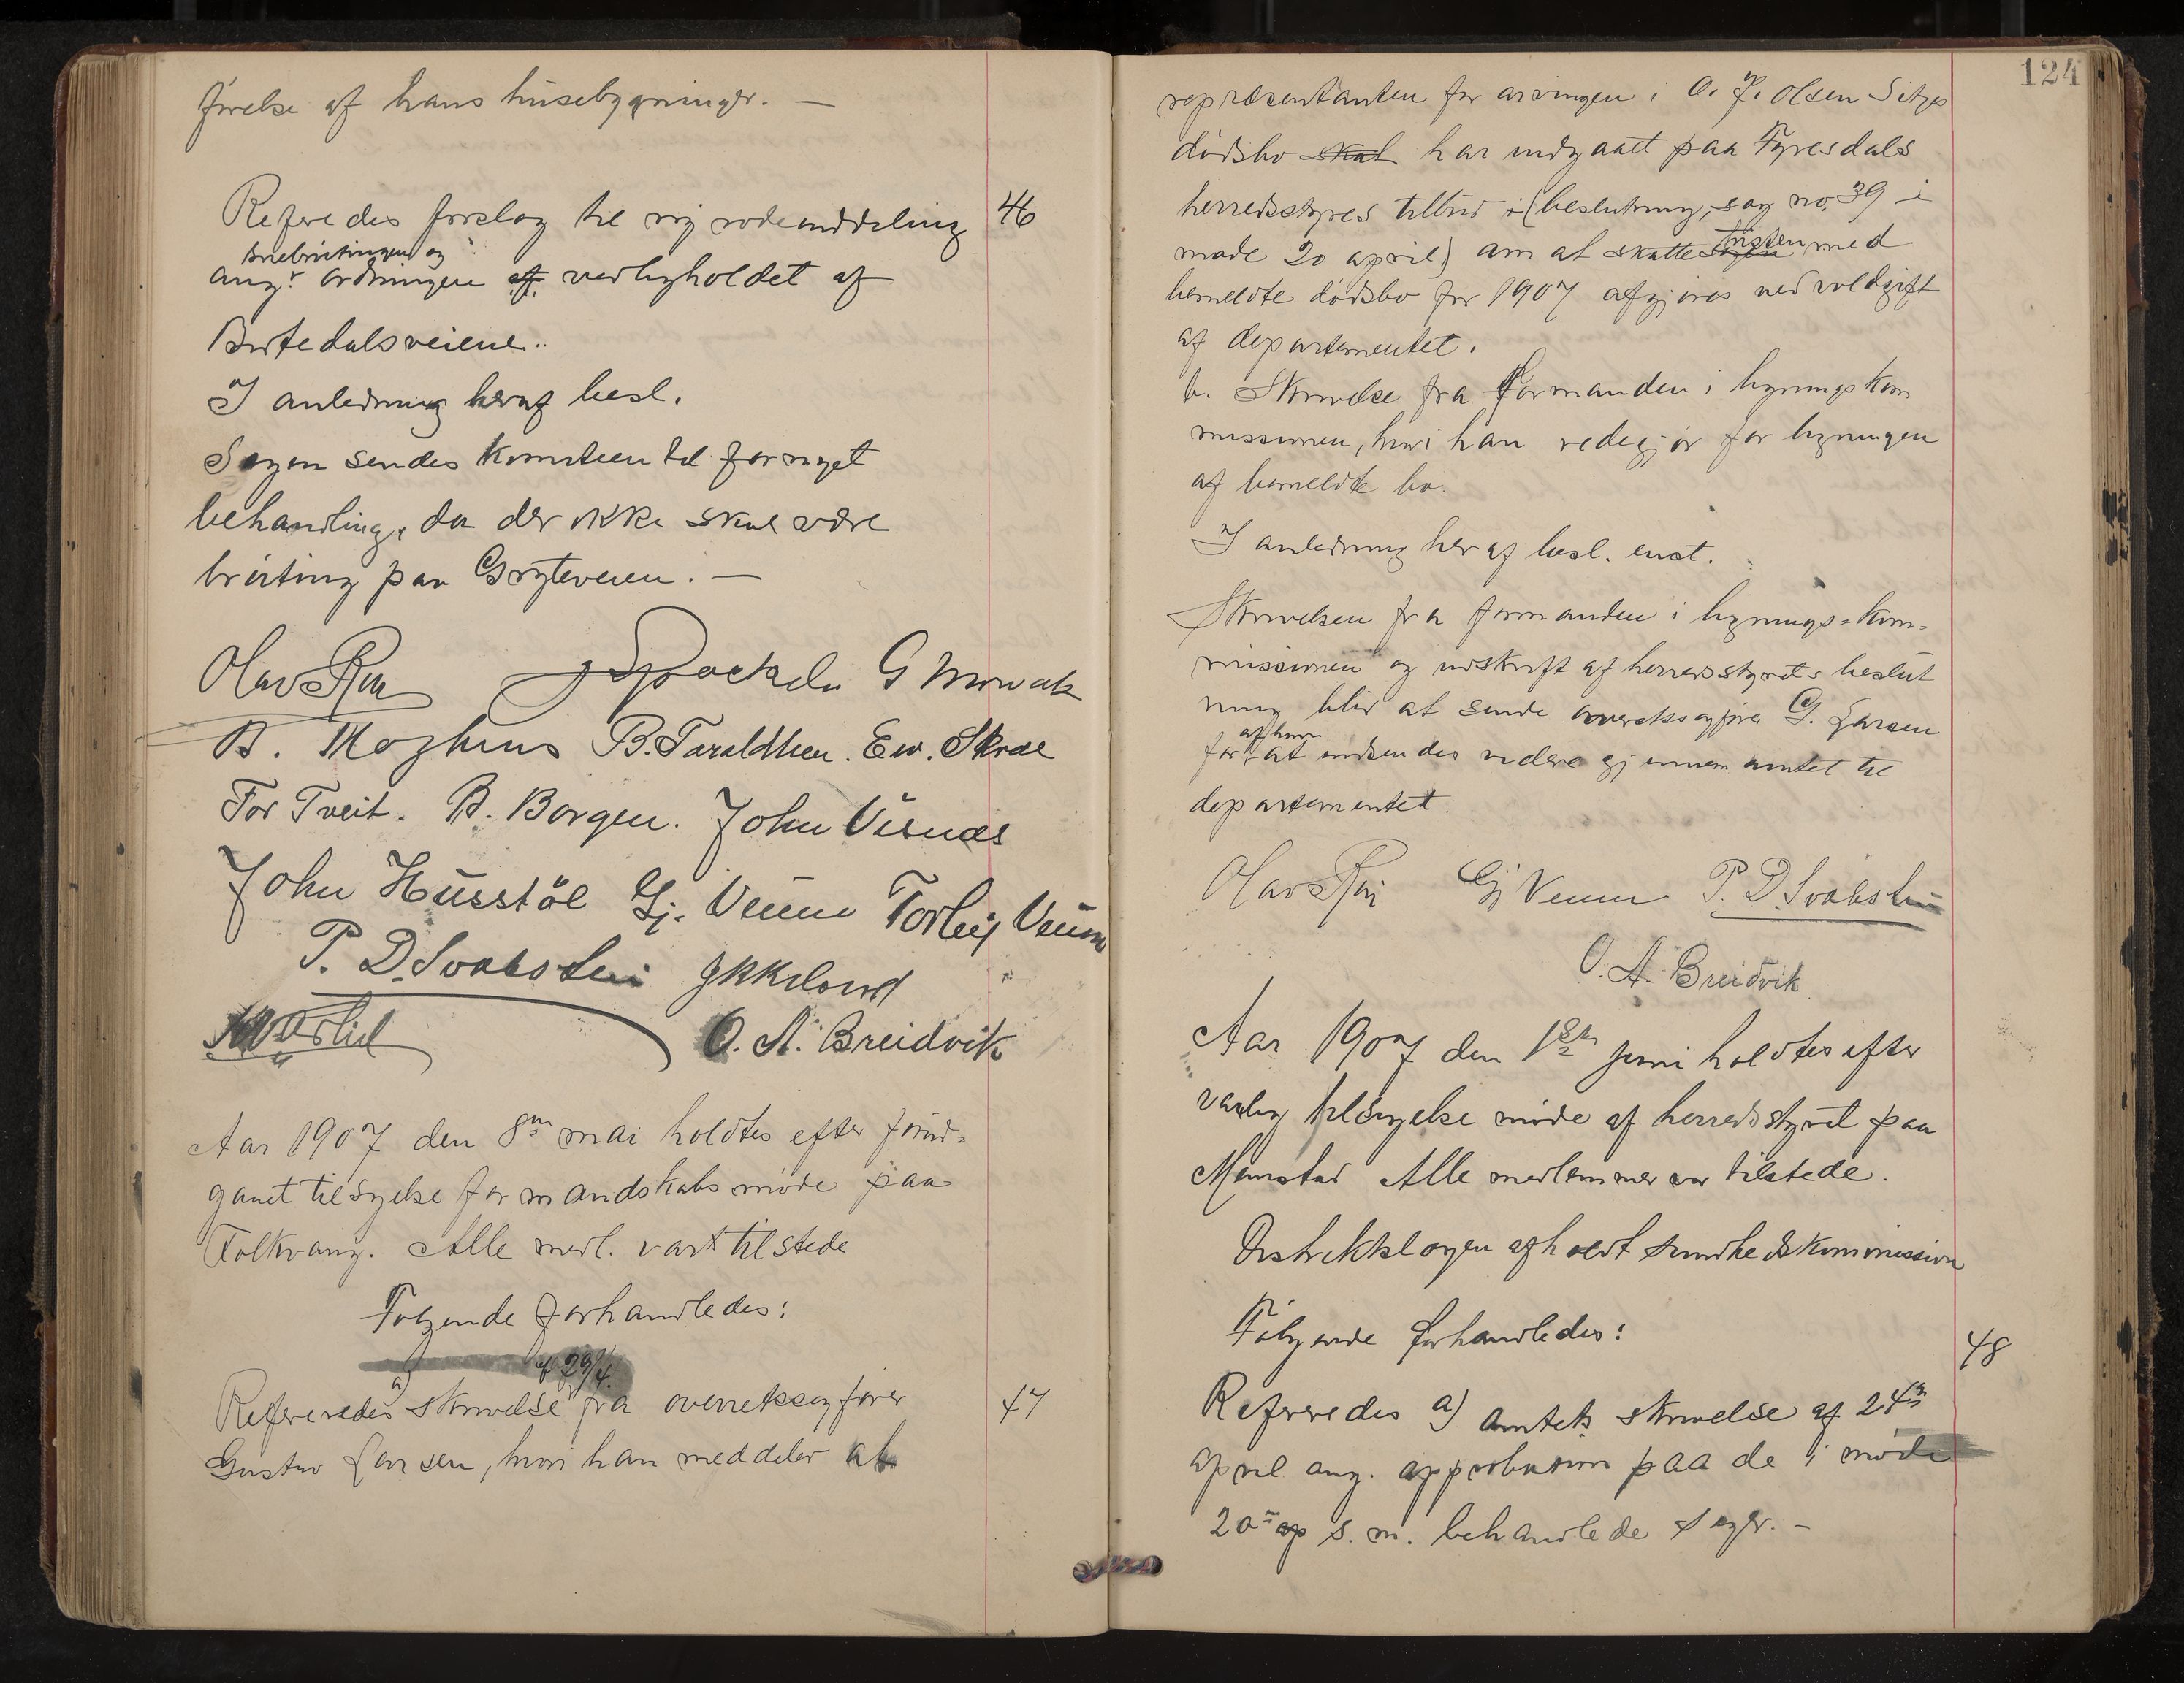 førelse af hans husebygninger. —
Referedes forslag til ny rodeinddeling 46
snebrøitingen og
ang. ordningen af vedligeholdet af
Birtedalsveiene..
I anledning heraf besl.
Sagen sendes komiteen til fornyet
behandling, da der ikke skal være
brøiting paa Grøteveien. —
G Mowatt
B. Moghus B. Taraldlien. Ew. Skrae
Tor Tveit. B. Borgen. John Visnæs
John Husstøl Gj. Veum Torleif Veum
P. D. Svalestuen
O. A. Breidvik
Aar 1907 den 8de mai holdtes efter forud=
gaaet tilsigelse formandskabsmøde paa
Folkvang. Alle medl. var tilstede
Følgende forhandledes:
af 29/4.
a)
Refereredes skrivelse fra overretssagfører 47
Gustav Larsen, hvori han meddeler at
124
repræsentanten for arvingen i O. J. Olsen
dødsbo skal har indgaatt paa Fyresdals
herredsstyres tilbud i (beslutning, sag no. 39 i
møde 20 april) om at skattesagen med
tvisten
bemeldte dødsbo for 1907 afgjøres ved voldgift
af departementet.
b. Skrivelse fra formanden i ligningskom
missionen, hvori han redegjør for ligningen
af bemeldte bo.
I anledning heraf besl. enst.
Skrivelsen fra formanden i lignings-kom-
missionen og udskrift af herredsstyrets beslut
ning blir at sende overretssagfører G. Larsen
af ham
for at indsendes videre gjennem amtet til
departementet.
Gj Veum P. D. Svalestuen
O. A. Breidvik
Aar 1907 den 1ste juni holdtes efter
vanlig tilsigelse møde af herredsstyret paa
Momstad Alle medlemmer var tilstede.
Distriktslægen afholdt sundhedskommission
Følgende forhandledes:
48
Referedes a) amtets skrivelse af 24de
april ang. approbation paa de i møde
20de ap s. m. behandlede sager. —